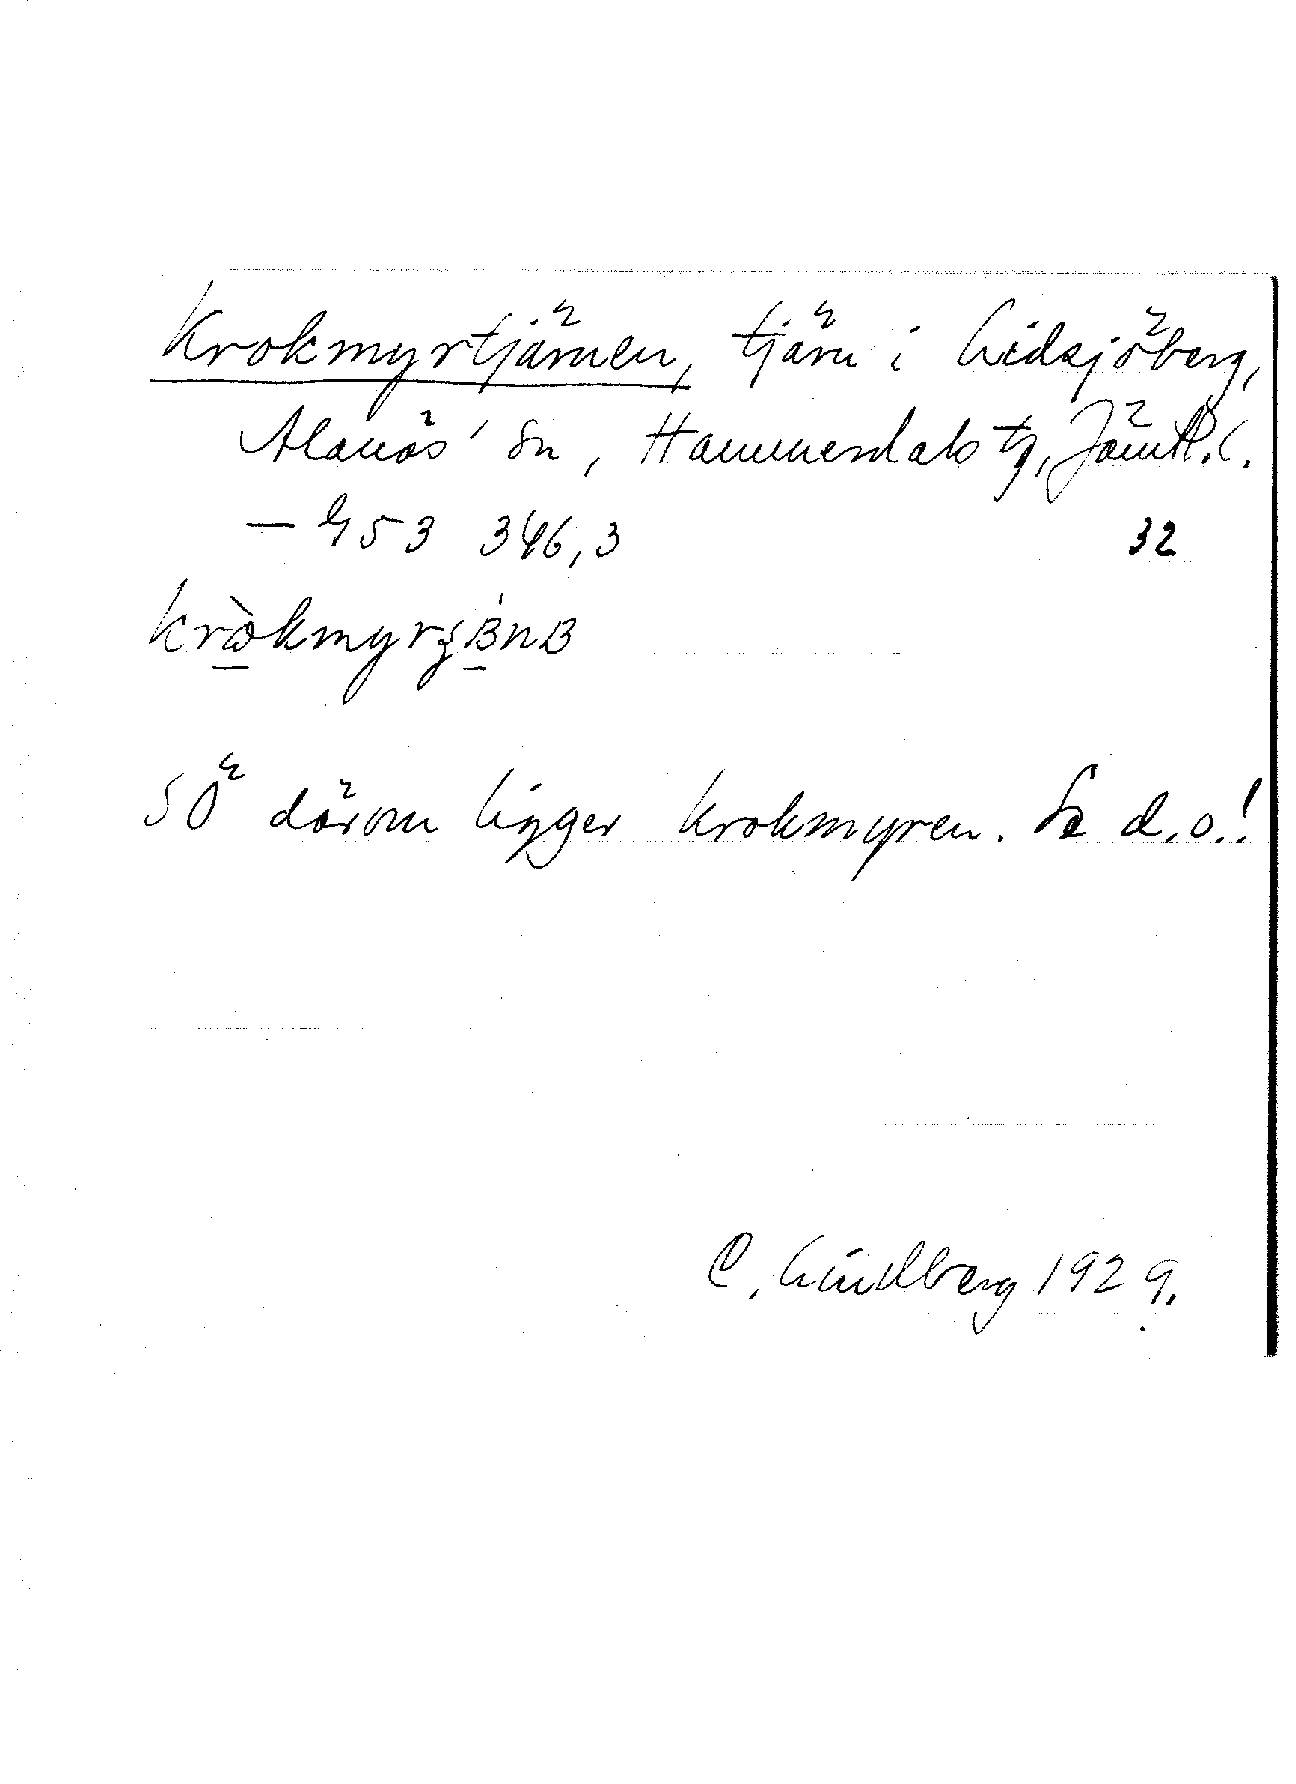 Krokmyrtjärnen, tjärn i Lidsjöberg,
Alanäs' sn, Hammerdals tg, Jämtl. l.
— 453 346,3 32
SÖ därom ligger Krokmyren. Se d.o.!
C. Lindberg 1929.